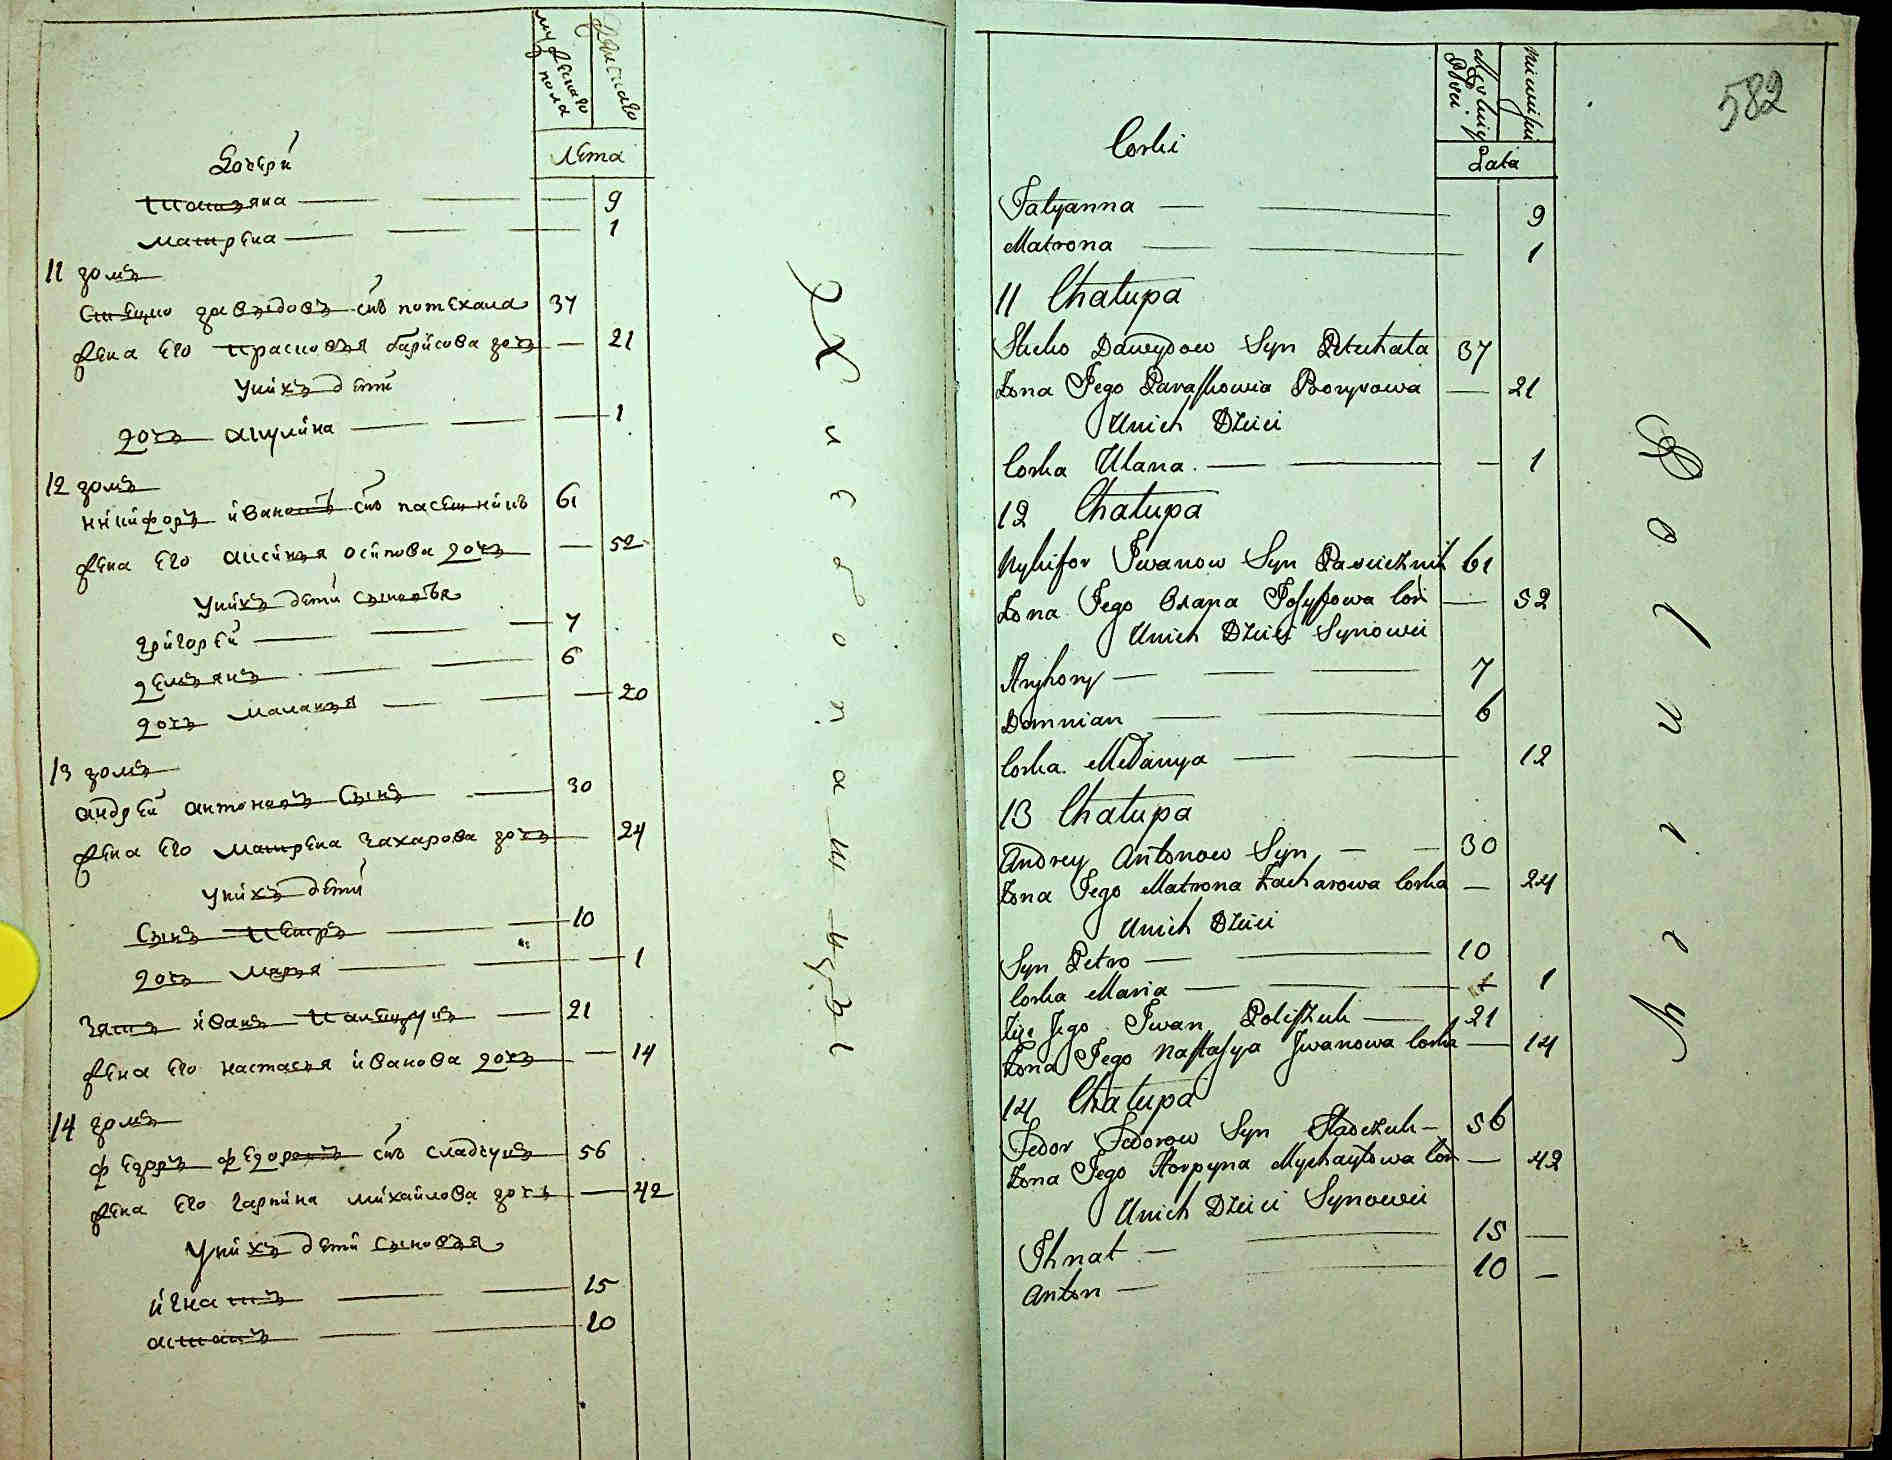 мужескаго пола
женскаго
Лета
Дочери
Татьяна 9
матрена 1
11 домъ
Стецко давыдовъ снъ потехала 37
жена его Прасковья барисова дочь 21
У них дети
дочь акулина 1
12 домъ
никифоръ ивановъ снъ пасешникъ 61
жена его аксинья осипова дочь 52
У нихъ дети сыновья
григорей 7
демьянъ 6
дочь маланья 20
13 домъ
андрей антоновъ Сынъ 30
жена его матрена захарова дочь 24
У нихъ дети
Сынъ Петръ 10
дочь марья 1
Зять иванъ Палещукъ 21
жена его настасья иванова дочь 14
14 домъ
федоръ федоровъ снъ сладчукъ 56
жена его гарпина михайлова дочь 42
У нихъ дети сыновья
игнатъ 15
антонъ 10
582
Lata
Corki
Tatyanna 9
Matrona 1
11 Chałupa
Stecko Dawydow Syn Petuchała 37
Żona Jego Paraskowia Borysowa 21
Unich Dzieci
Corka Ulana 1
12 Chałupa
Nykifor Iwanow Syn Pasiecznik 61
Żona Jego Oxana Josypowa Cor 52
Unich Dzieci Synowei
Hryhory 7
Domnian 6
Corka Mełanya 12
13 Chałupa
Andrey Antonow Syn 30
Żona Jego Matrona Zacharowa Corka 24
Unich Dzieci
Syn Petro 10
Corka Maria 1
Zięc Jego Iwan Poliszuk 21
Żona Jego Nastasya Iwanowa Corka 14
14 Chałupa
Fedor Fedorow Syn Sładczuk 56
Żona Jego Horpyna Mychayłowa Cor 42
Unich Dzieci Synowei
Ihnat 15
Anton 10